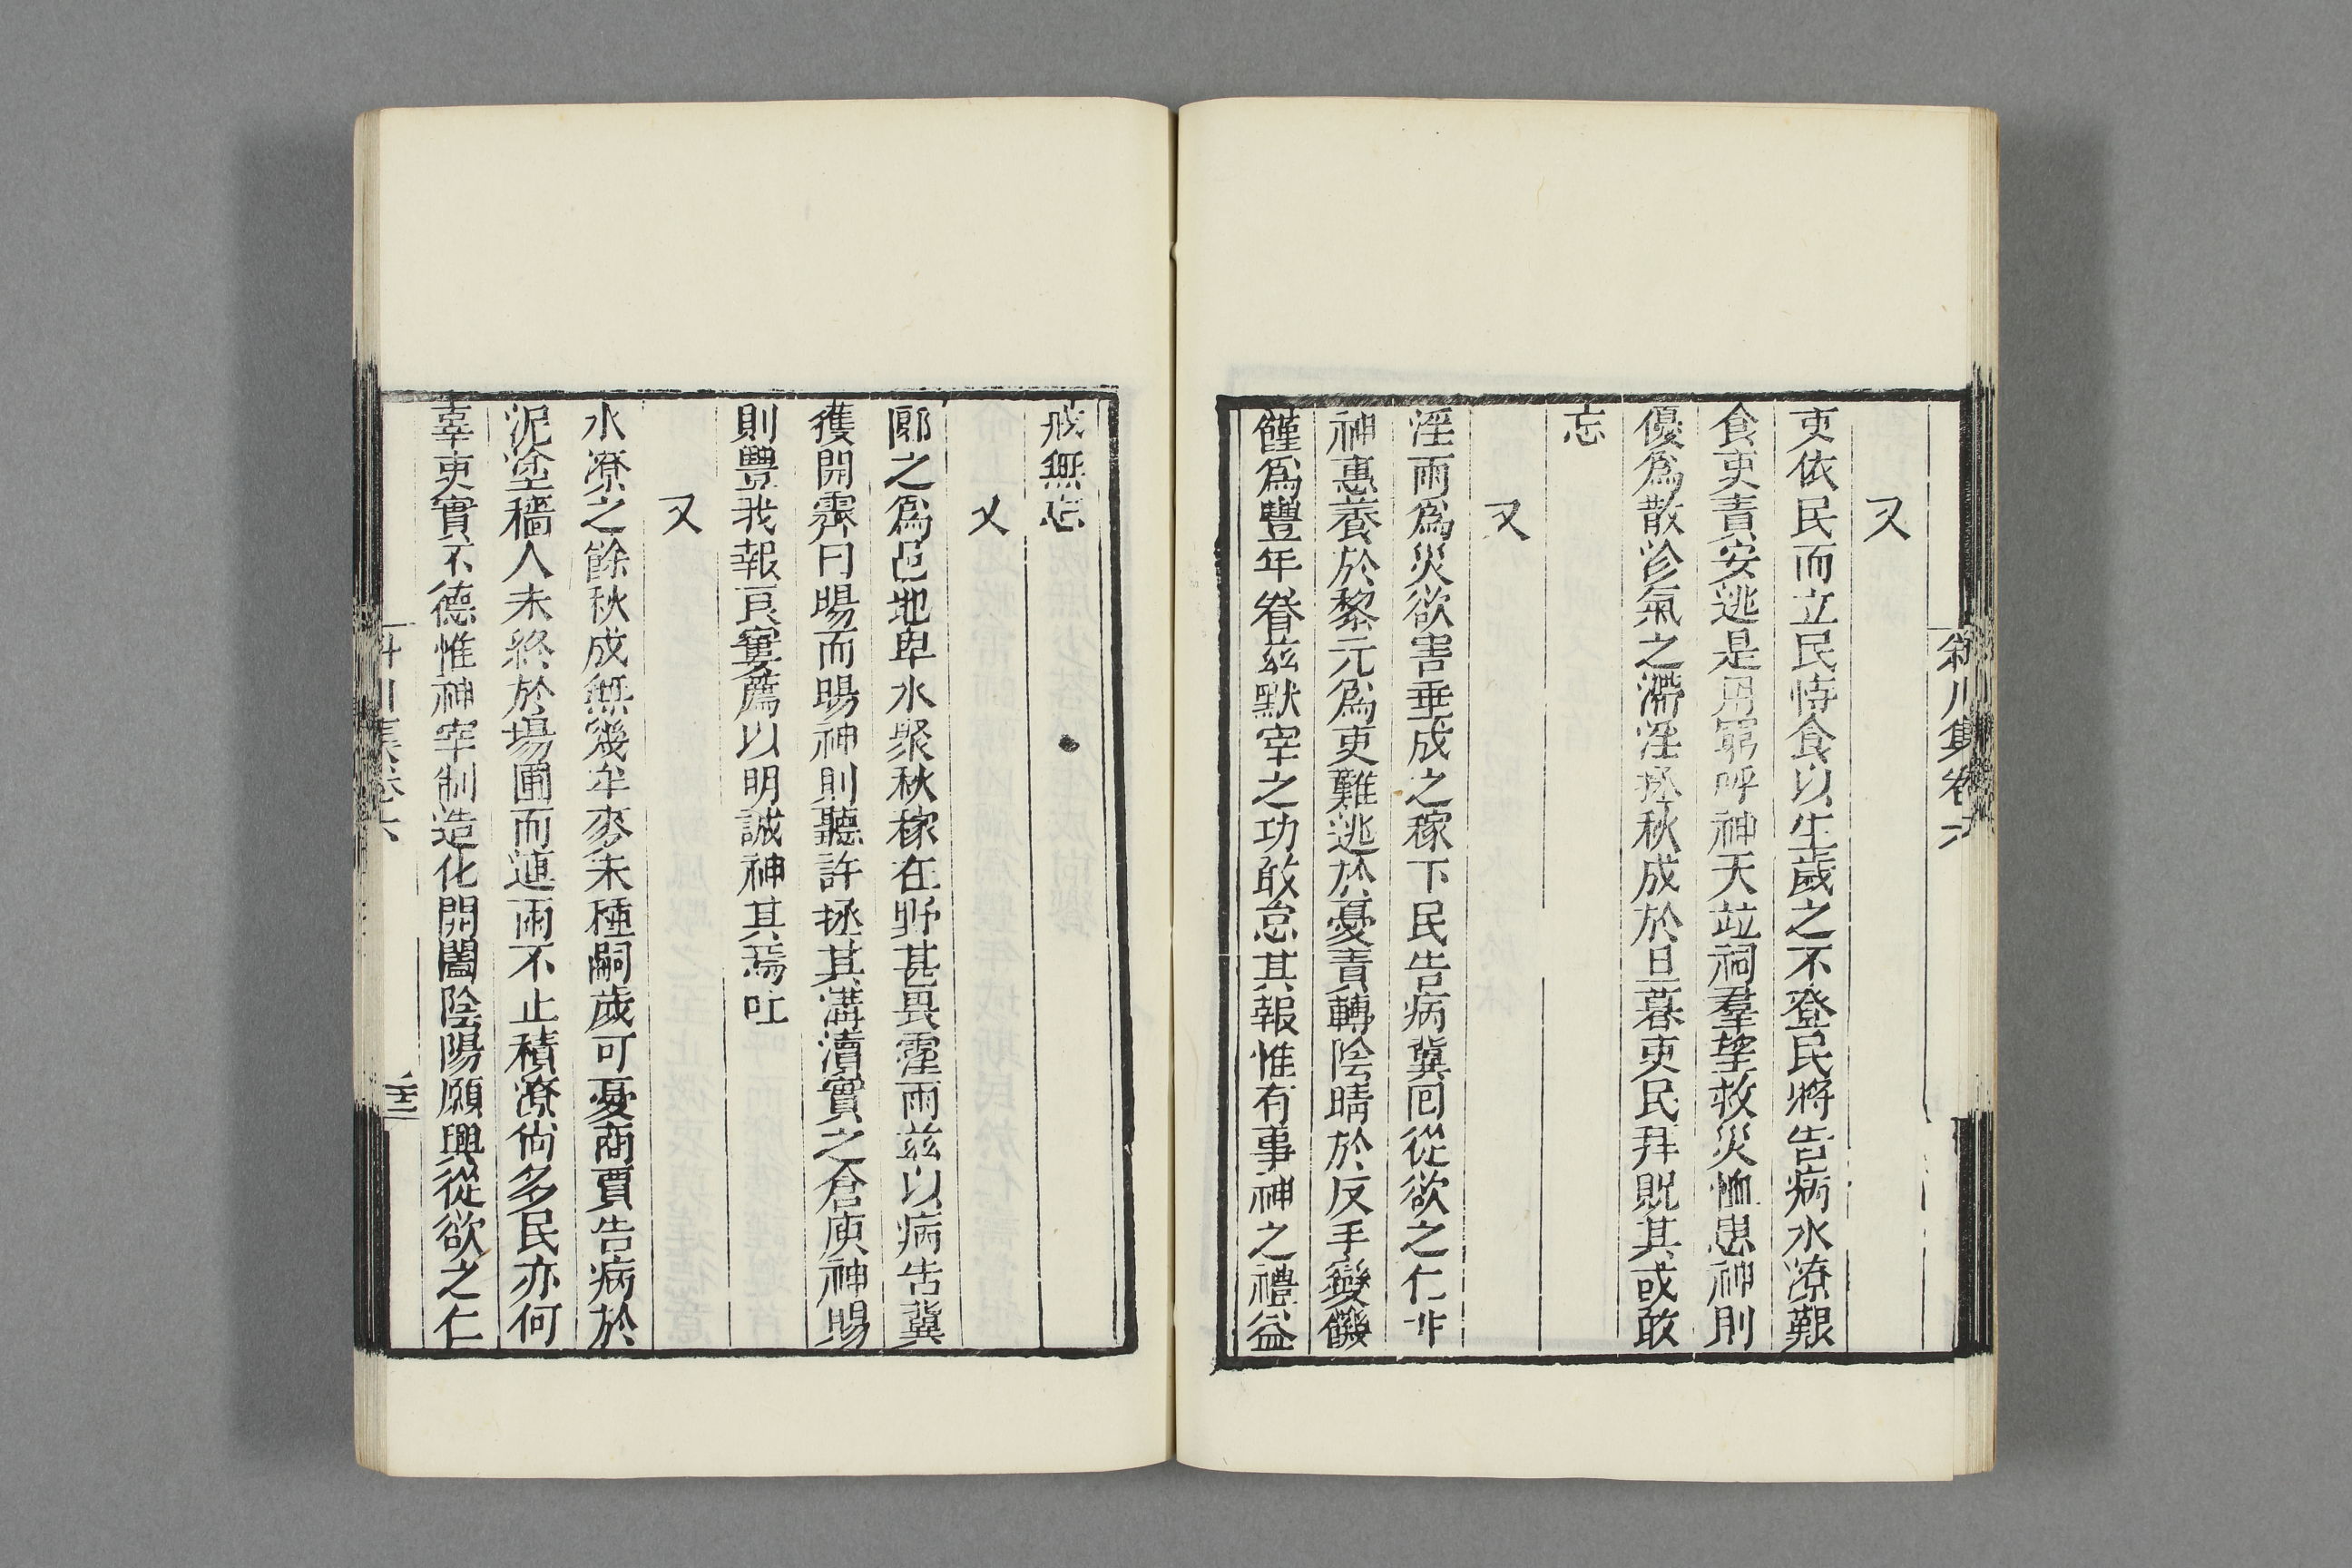 又
吏依民而立民恃食以生歲之不登民將告病水潦艱
食吏責安逃是用窮呼神天竝祠羣望救災恤患神則
優爲散沴氣之滯淫拯秋成於旦暮吏民拜貺其或敢
忘
又
淫雨爲災欲害垂成之稼下民告病冀回從欲之仁
神惠養於黎元爲吏難逃於憂責轉陰晴於反手變饑
饉爲豐年眷兹默宰之功敢怠其報惟有事神之禮益
戒無怠
又
鄭之爲邑地卑水聚秋稼在野甚畏霪雨兹以病告冀
獲開霽曰暘而暘神則聽許拯其溝瀆實之倉庾神賜
則豐我報良寠薦以明誠神其焉吐
又
水潦之餘秋成無幾牟麥未種嗣歲可憂商賈告病於
泥塗穡人未終於場圃而連雨不止積潦尚多民亦何
辜吏實不德惟神宰制造化開闔陰陽願興從欲之仁
川集卷六